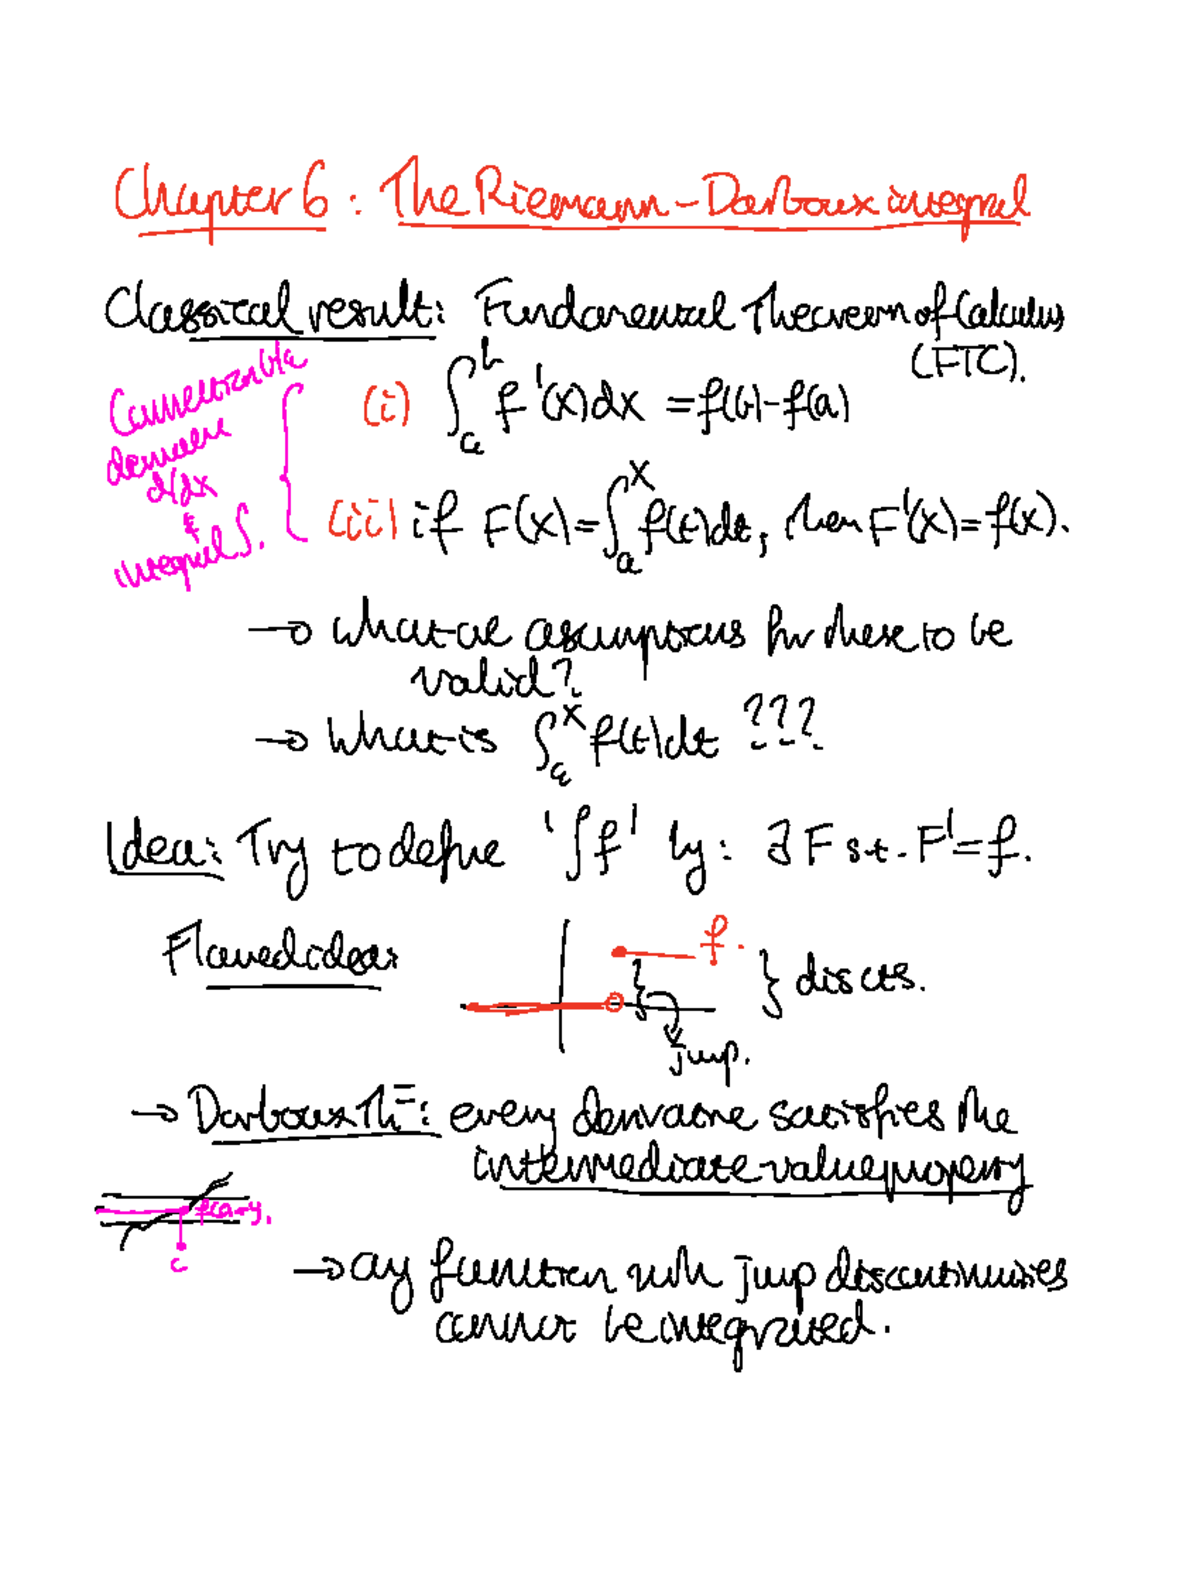 Chapter 6: The Riemann-Darboux integral
Classical result: Fundamental Theorem of Calculus
(FTC).
Connection b/w
derivative
d/dx
&
integral ∫.
(i) ∫_a^b f'(x)dx = f(b)-f(a)
(ii) if F(x)=∫_a^x f(t)dt, then F'(x)=f(x).
→ What are assumptions for these to be
valid?
→ What is ∫_a^x f(t)dt ???
Idea: Try to define '∫f' by: ∃ F s.t. F'=f.
Flawed idea:
f.
} discts.
jump.
→ Darboux Th=: every derivative satisfies the
intermediate value property
f(c)=y.
c
→ any function with jump discontinuities
cannot be integrated.